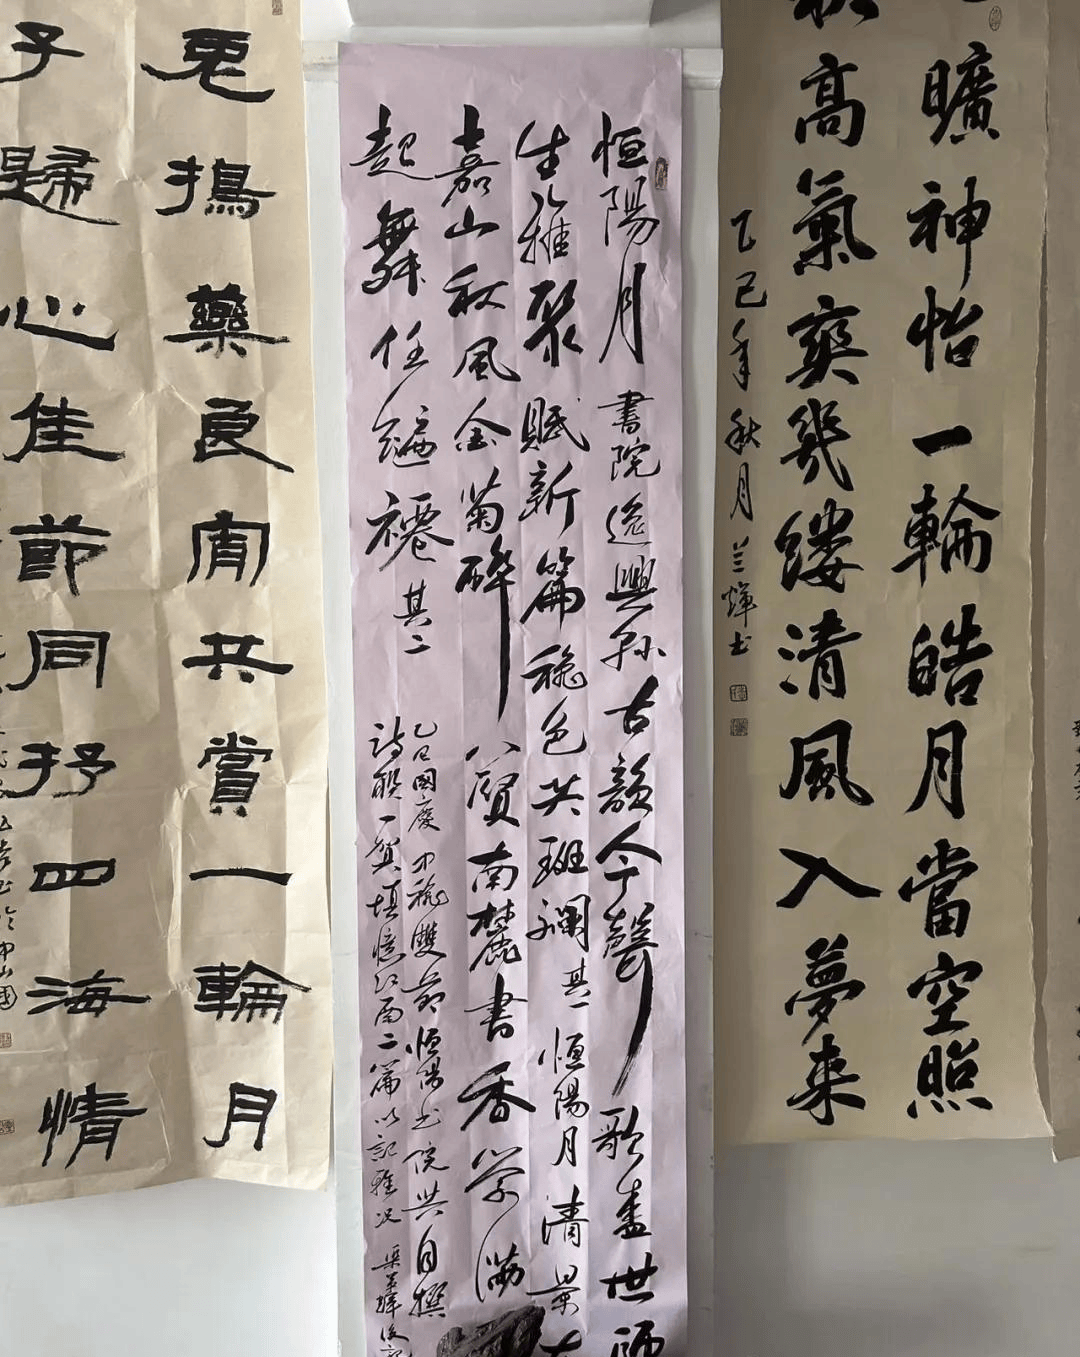 曠神怡一輪皓月當空照
高氣爽幾縷清風入夢來
乙巳年秋月兰煇书
恒陽月書院逸興孙古韻今聲歌盛世師
生雅聚賦新篇穐色共斑斓其一恒陽月清景
嘉山秋風金菊醉八寳南麓書香学满
起舞任翩襹其二
乙巳國慶中秋雙節恒陽书院興自撰
詩联一賀填憶江南二篇以記雅况
兎搗藥良宵共賞一輪月
子歸心佳節同抒四海情